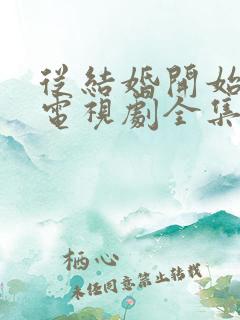 從結婚開始
電視劇全集
栖心
未任同意禁止转载